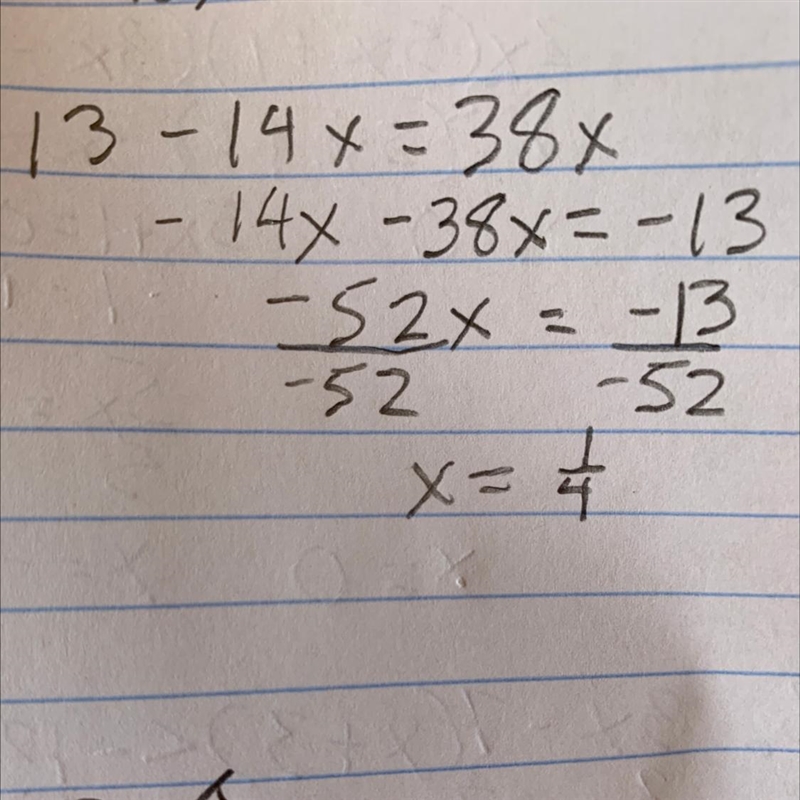 13 - 14x = 38x
- 14x - 38x = -13
-52x = -13
-52 -52
x = 1/4